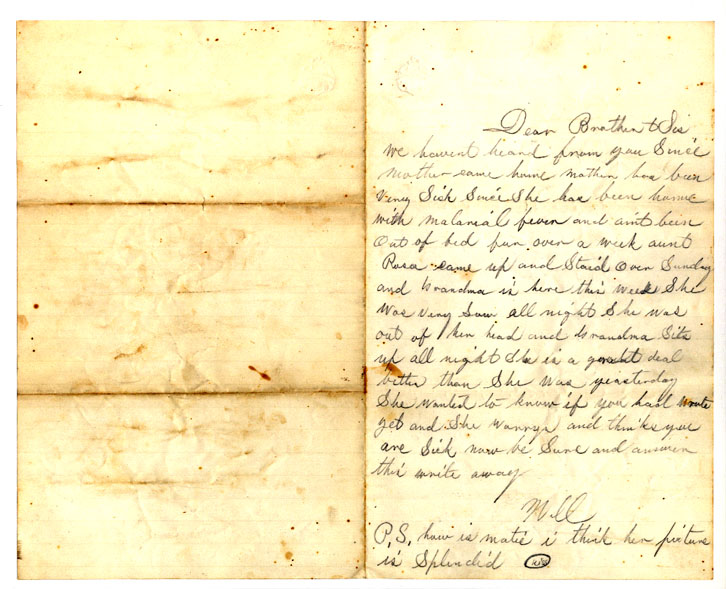 Dear Brother & Sis
we havent heard from you Since
mother came home mother has been
very Sick Since She has been home
with malarial fever and aint been
out of bed fur over a week aunt
Rosa came up and Staid over Sunday
and Grandma is here this week She
was very Low all night She was
out of her head and Grandma Sits
up all night She is a great deal
better than She was yeasterday
She wanted to know if you had wrote
yet and She worrys and thinks you
are Sick now be Sure and answer
this write away
P.S. how is matie i think her picture
is Splendid